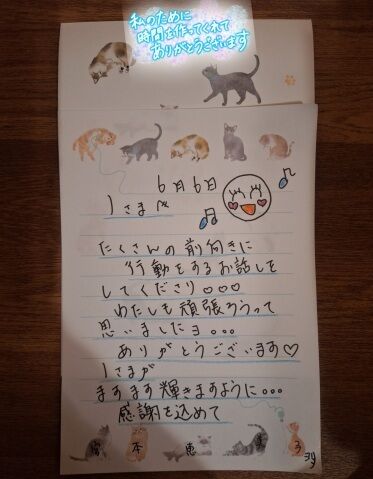 私のために
時間を作ってくれて
ありがとうございます
6月6日
たくさんの前向きに
行動をするお話しを
してくださり♡♡♡
わたしも頑張ろうって
思いましたョ...
ありがとうございます♡
ますます輝きますように...
感謝を込めて
本恵